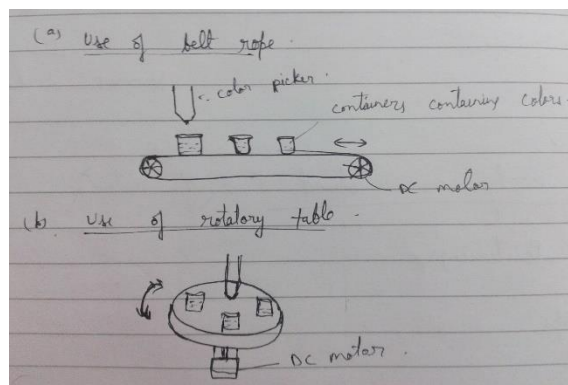 (a) Use of belt rope.
color picker.
containers containing colors.
DC motor
(b). Use of rotatory table.
DC motor.